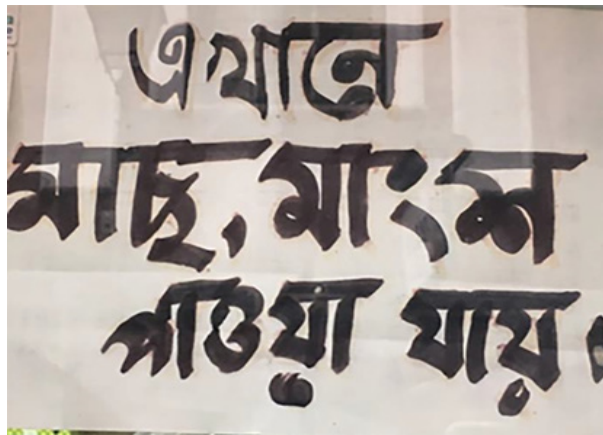 এখানে
মাছ, মাংস
পাওয়া যায়।